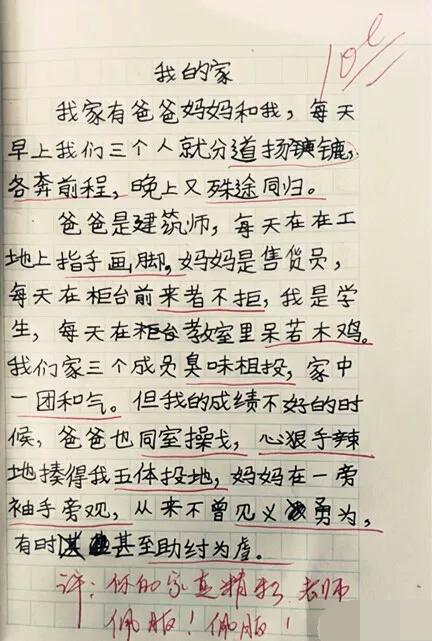 100
我的家
我家有爸爸妈妈和我，每天
早上我们三个人就分道扬镳，
各奔前程，晚上又殊途同归。
爸爸是建筑师，每天在在工
地上指手画脚，妈妈是售货员，
每天在柜台前来者不拒，我是学
生，每天在教室里呆若木鸡。
我们家三个成员臭味相投，家中
一团和气。但我的成绩不好的时
候，爸爸也同室操戈，心狠手辣
地揍得我五体投地，妈妈在一旁
袖手旁观，从来不曾见义勇为，
有时甚至助纣为虐。
评：你的家真精彩，老师
佩服！佩服！